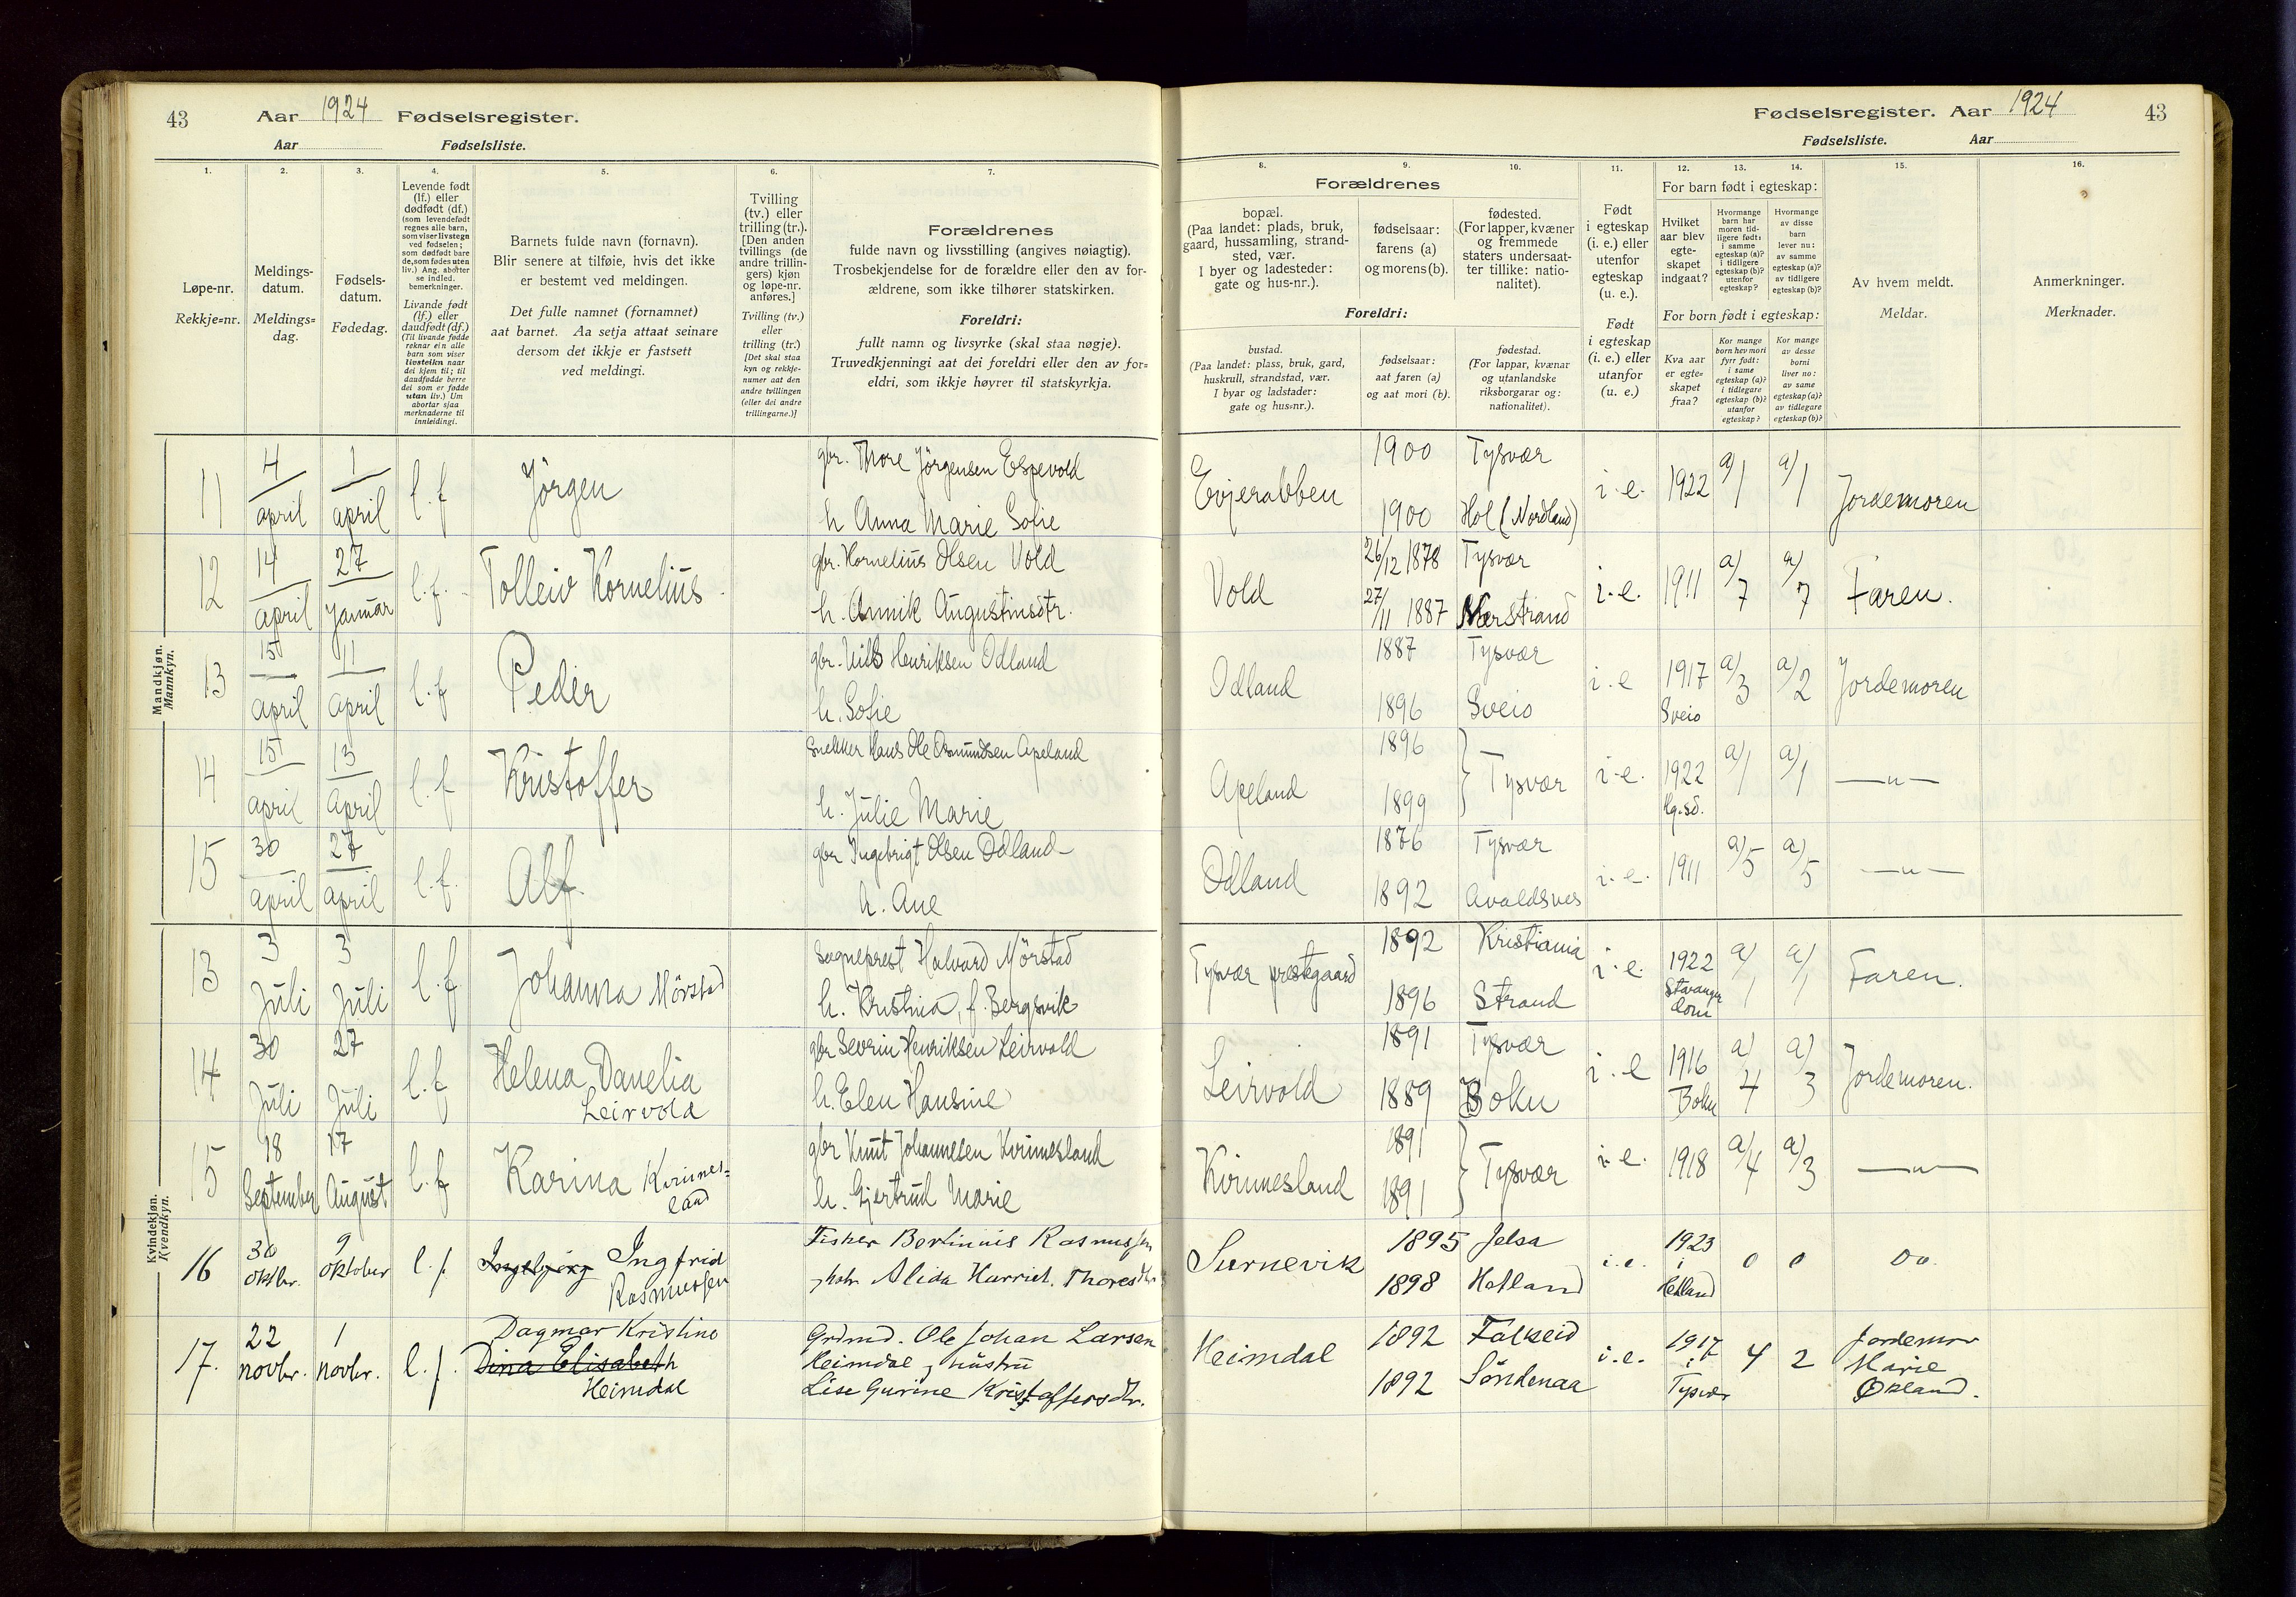 43 Aar 1924 Fødselsregister.
Aar Fødselsliste.
Fødselsregister. Aar 1924 43
Fødselsliste. Aar
1. 2. 3. 4. 5. 6. 7.
8. 9. 10. 11. 12. 13. 14. 15. 16.
Løpe-nr.
Rekkje=nr.
Meldings-
datum.
Meldings=
dag.
Fødsels-
datum.
Fødedag.
Levende født
(lf.) eller
dødfødt (df.)
(som levendefødt
regnes alle barn,
som viser livstegn
ved fødselen;
som dødfødt bare
de, som fødes uten
liv.) Ang. aborter
se indled.
bemerkninger.
Livande født
(lf.) eller
daudfødt (df.)
(Til livande fødde
reknar ein alle
barn som viser
livsteikn naar
dei kjem til; til
daudfødde berre
dei som er fødde
utan liv.) Um
abortar sjaa
merknaderne til
innleidingi.
Barnets fulde navn (fornavn).
Blir senere at tilføie, hvis det ikke
er bestemt ved meldingen.
Det fulle namnet (fornamnet)
aat barnet. Aa setja attaat seinare
dersom det ikkje er fastsett
ved meldingi.
Tvilling
(tv.) eller
trilling (tr.).
[Den anden
tvillings (de
andre trillin-
gers) kjøn
og løpe-nr.
anføres.]
Tvilling (tv.)
eller
trilling (tr.)
[Det skal staa
kyn og rekkje-
numer aat den
andre tvillingen
(eller dei andre
trillingarne.)]
Forældrenes
fulde navn og livsstilling (angives nøiagtig).
Trosbekjendelse for de forældre eller den av for-
ældrene, som ikke tilhører statskirken.
Foreldri:
fullt namn og livsyrke (skal staa nøgje).
Truvedkjenningi aat dei foreldri eller den av for=
eldri, som ikkje høyrer til statskyrkja.
Forældrenes
bopæl.
(Paa landet: plads, bruk,
gaard, hussamling, strand-
sted, vær.
I byer og ladesteder:
gate og hus-nr.).
fødselsaar:
farens (a)
og morens (b).
fødested.
(For lapper, kvæner
og fremmede
staters undersaat-
ter tillike: natio-
nalitet).
Foreldri:
bustad.
(Paa landet: plass, bruk, gard,
huskrull, strandstad, vær.
I byar og ladstader:
gate og hus=nr.).
fødselsaar:
aat faren (a)
og aat mori (b).
fødestad.
(For lappar, kvænar
og utanlandske
riksborgarar og:
nationalitet).
Født
i egteskap
(i. e.) eller
utenfor
egteskap
(u. e.).
Født
i egteskap
(i. e.) eller
utanfor
(u. e.)
For barn født i egteskap:
Hvilket
aar blev
egte-
skapet
indgaat?
Hvormange
barn har
moren tid-
ligere født:
i samme
egteskap (a)?
i tidligere
egteskap (b)?
utenfor
egteskap?
Hvormange
av disse
barn
lever nu:
av samme
egteskap (a)?
av tidligere
egteskap (b)?
For born født i egteskap:
Kva aar
er egte=
skapet
fraa?
Kor mange
born hev mori
fyrr født:
i same
egteskap (a)?
i tidlegare
egteskap (b)?
utanfor
egteskap?
Kor mange
av desse
borni
liver no:
av same
egteskap (a)?
av tidlegare
egteskap (b)?
Av hvem meldt.
Meldar.
Anmerkninger.
Merknader.
Mandkjøn.
Mannkyn.
11 4 april 1 april l.f Jörgen gbr. Thore Jörgensen Espevold
h Anna Marie Sofie
Evjerabben 1900 Tysvær i.e. 1922 a/1 a/1 Jordemoren
1900 Hol (Nordland)
12 14 april 27 Januar l.f. Tolleiv Kornelius. gbr. Kornelius Olsen Vold
h. Annik Augustinsdtr.
Vold 26/12 1878 Tysvær i.e. 1911 a/7 a/7 Faren.
27/11 1887 Nærstrand
13 15 april 11 april l.f Peder gbr. Nils Henriksen Odland
h. Sofie
Odland 1887 Tysvær i.e 1917 a/3 a/2 Jordemoren
1896 Sveio Sveio
14 15 april 13 april l.f Kristoffer Snekker Hans Ole Osmundsen Apeland
h. Julie Marie
Apeland 1896 } Tysvær i.e. 1922 a/1 a/1 —"—
1899 Hg.sd.
15 30 april 27 april l.f. Alf. gbr Ingebrigt Olsen Odland
h. Ane
Odland 1876 Tysvær i.e. 1911 a/5 a/5 —"—
1892 Avaldsnes
Kvindekjøn.
Kvendkyn.
13 3 Juli 3 Juli l.f. Johanna Mörstad Sogneprest Halvard Mörstad
h. Kristina, f. Bergsvik
Tysvær prestegaard 1892 Kristiania i.e. 1922 a/1 a/1 Faren.
1896 Strand Stavanger dom
14 30 Juli 27 Juli l.f Helena Danelia Leirvold gbr Sevrin Henriksen Leirvold
h. Elen Hansine
Leirvold 1891 Tysvær i.e 1916 a/4 a/3 Jordemoren.
1889 Bokn Bokn
15 18 September 17 August l.f Karina Kvinnes=
land gbr Knut Johannesen Kvinnesland
h. Gjertrud Marie
Kvinnesland 1891 } Tysvær i.e. 1918 a/4 a/3 —"—
1891
16 30 oktbr. 9 oktober l.f Ingebjørg Ingfrid
Rasmussen Fisker Bertinius Rasmussen
, hstr Alida Harriet. Thoresdtr
1895 Jelsa i.e. 1923 0 0 Do.
1898 Hetland i Hetland
17. 22 novbr. 1 novbr. l.f. Dagmar Kristine
Dina Elisabeth
Heimdal
Grdmd. Ole Johan Larsen
Heimdal, hustru
Lise Gurine Kristoffersdtr.
Heimdal 1892 Falkeid i.e. 1917 4 2 Jordemor
1892 Søndenaa i Tysvær Marie
Økland.